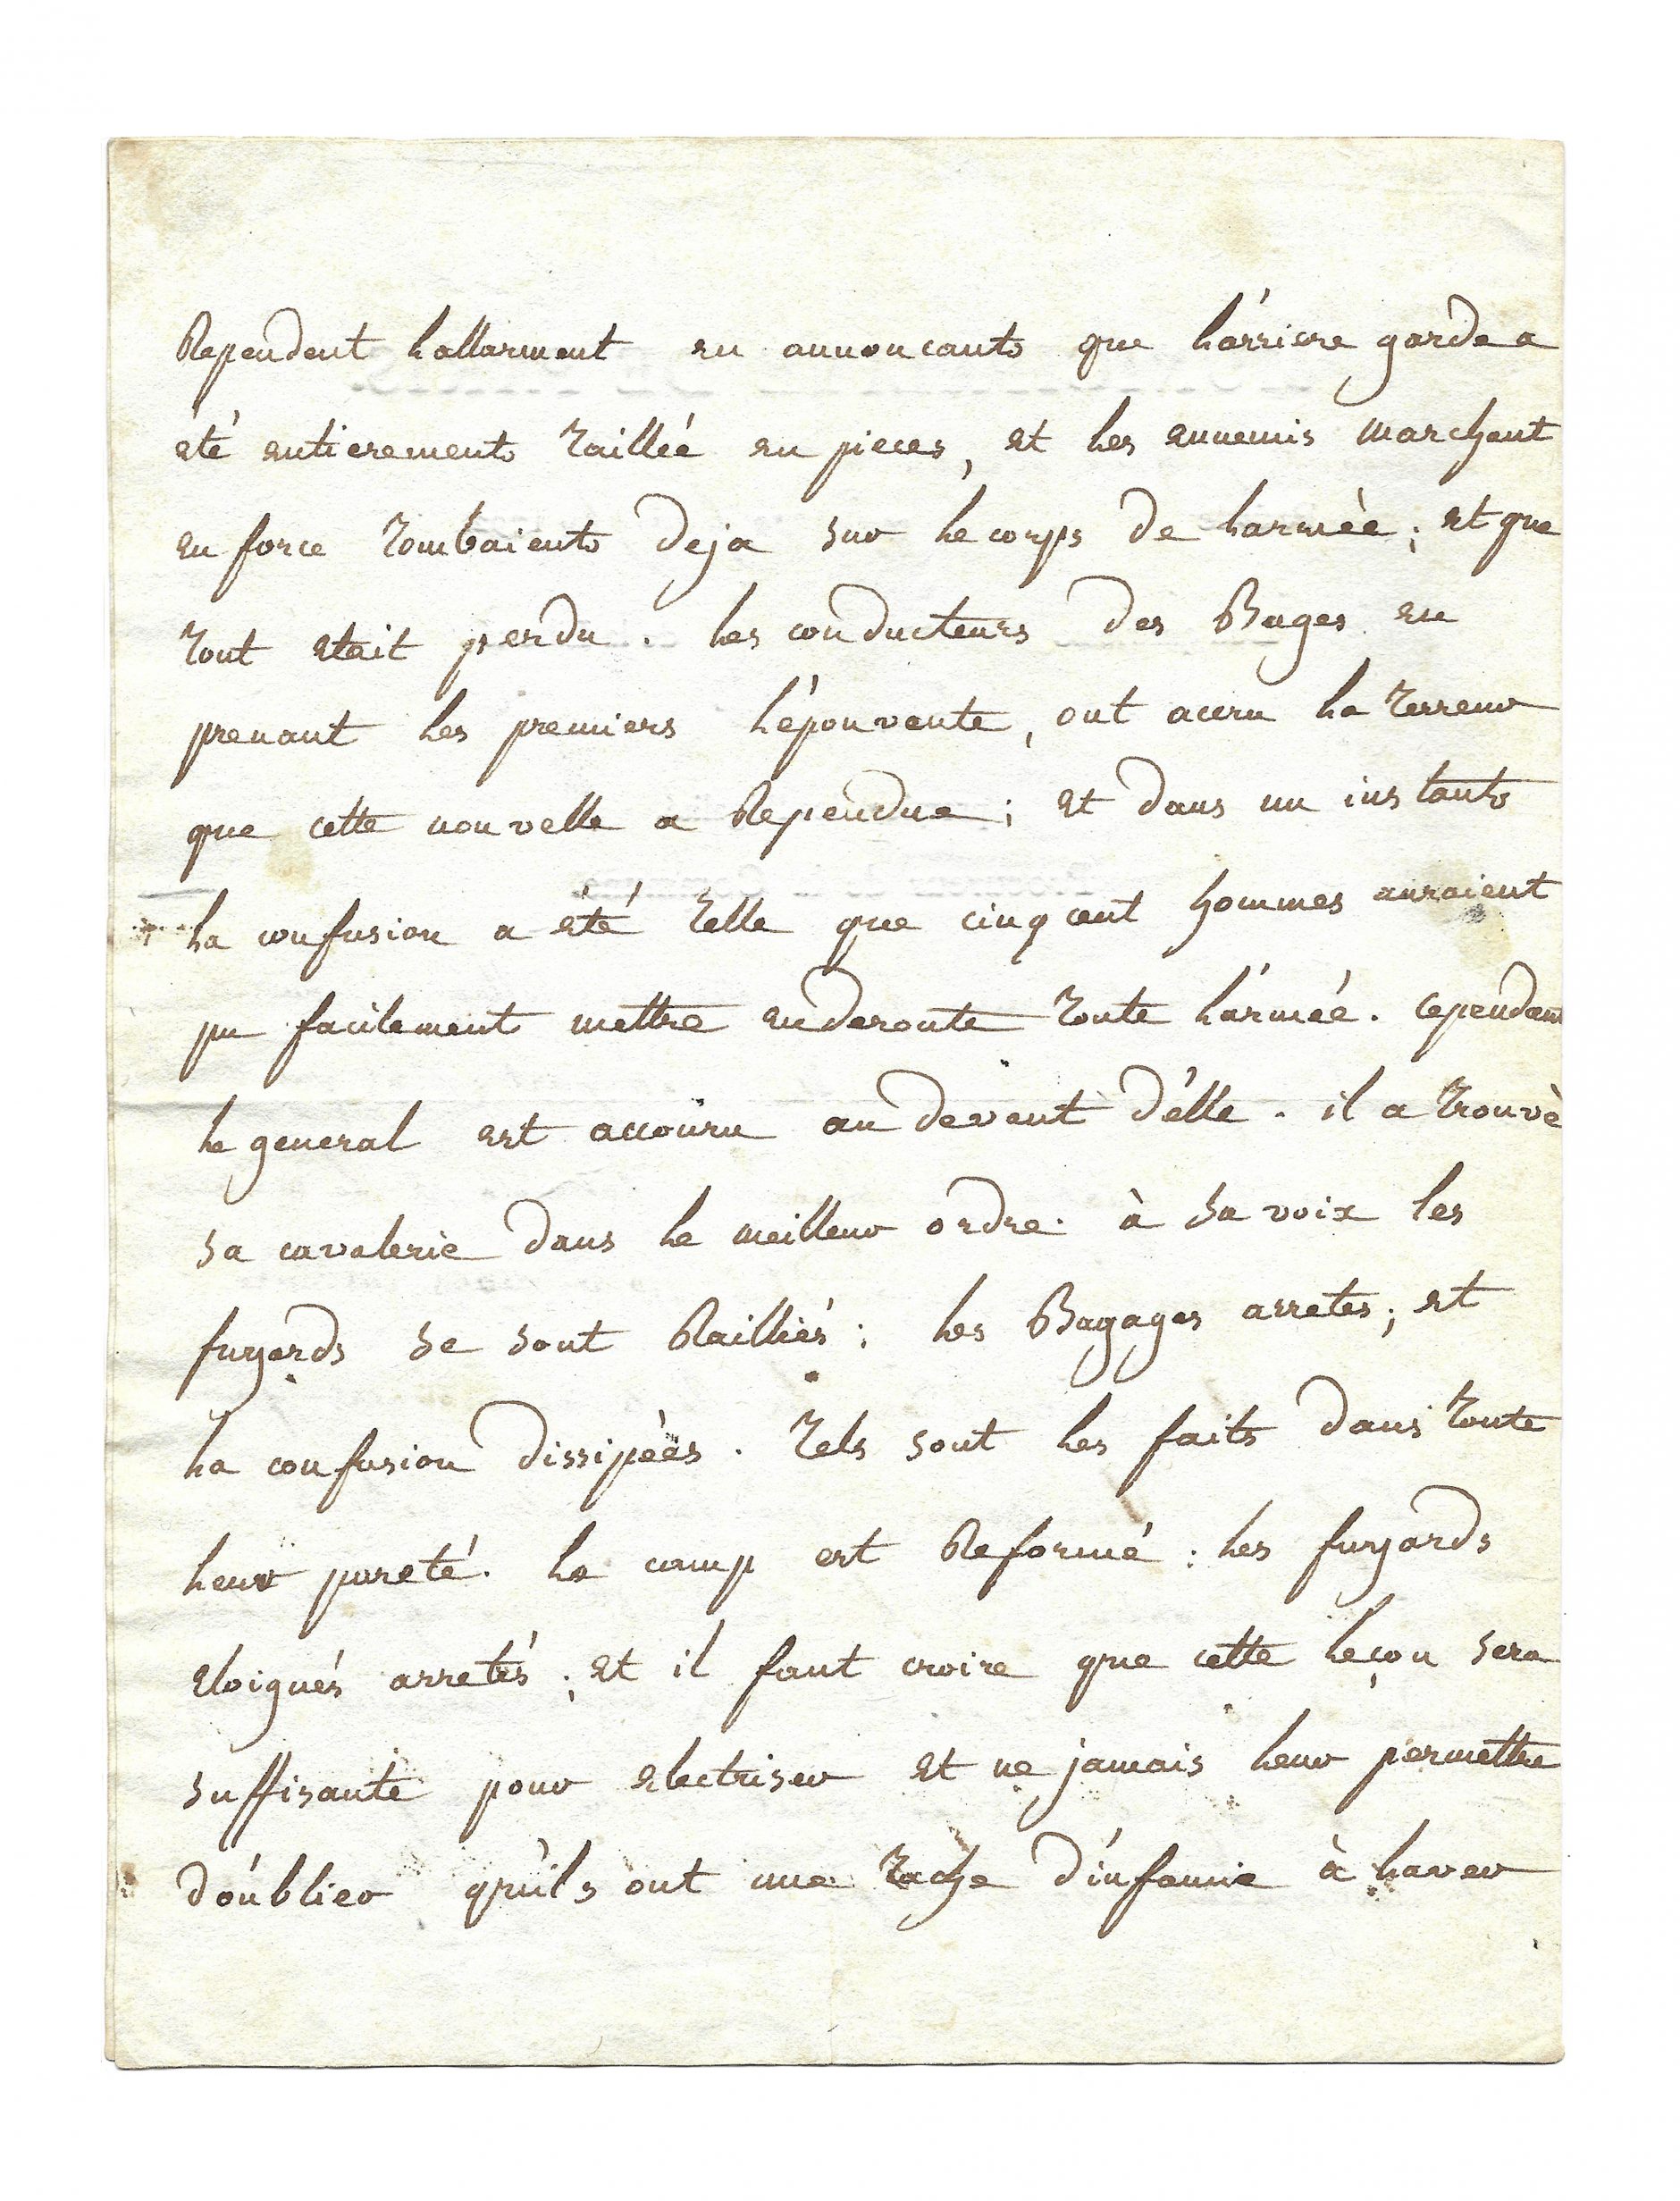 Rependent l'allarment en annoncants que l'árriere garde a
eté entierements taillée en pieces, et les ennemis marchent
en force tombaients deja sur le corps de larmèe; et que
tout etait perdu. les conducteurs des Bages en
prenant les premiers l'épouvente, ont accru la terreur
que cette nouvelle a Rependue; et dans un instants
la confusion a été telle que cinq cent hommes auraient
pu facilements mettre en deroute toute l'ármée. cependant
le general est accouru au devent d'élle. il a trouvè
sa cavalerie dans le meilleur ordre. à sa voix les
fuyards se sont Railliés: les Bagages arretes; et
la confusion dissipèes. tels sont les faits dans toute
leur pureté. le camp est Reformé: les fuyards
eloignés arretés; et il faut croire que cette leçon sera
suffisante pour electriser et ne jamais leur permettre
d'óublier qu'ils ont une tache d'infamie à laver